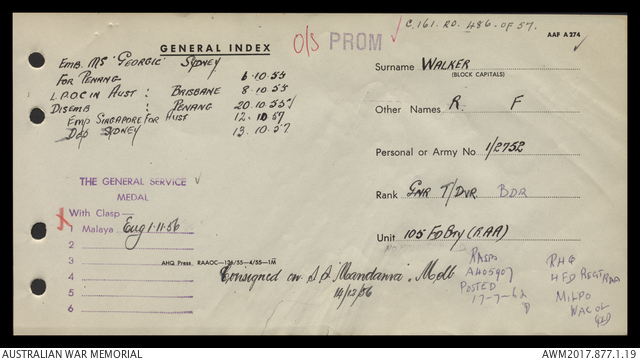 C.161. RO. 486. OF 57.
GENERAL INDEX
O/S PROM
AAF A 274
EMB. MS 'GEORGIC' SYDNEY
FOR PENANG 6.10.55
L.P.O.C IN AUST : BRISBANE 8.10.55
DISEMB : PENANG 20.10.55
EMB SINGAPORE FOR AUST 12.10.57
DEP SYDNEY 13.10.57
Surname WALKER
(BLOCK CAPITALS)
Other Names R. F
Personal or Army No. 1/2752
Rank GNR T/DVR BDR
Unit 105 FD BTY (RAA)
THE GENERAL SERVICE
MEDAL
With Clasp—
1 Malaya. Elig 1.11.56
2
3
4
5
6
AHQ Press. RAAOC—136/55—4/55—1M
Consigned on S.S. "Mandanna", Melb
14/12/56
RASPO
A405907
POSTED
17-7-62
RHQ
4 FD REGT RAA
MILPO
WACOL
QLD
AUSTRALIAN WAR MEMORIAL
AWM2017.877.1.19